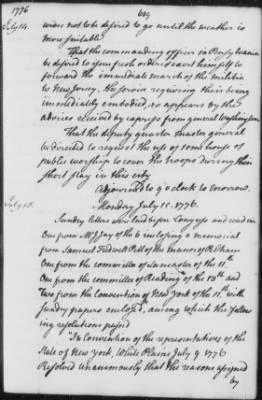 1776
619
July 14.
wises not to be desired to go until the weather is
more suitable
That the commanding officer in Pensylvania
be desired to issue fresh orders & exert himself to
forward the immediate march of the militia
to New Jersey. The service requiring their being
immediately embodied, as appears by the
advices received by express from general Washington
That the deputy quarter master general
be directed to request the use of some house of
public worship to cover the troops during their
short stay in this city
Adjourned to 9 o'Clock to Morrow.
July 15.
Monday July 15. 1776.
Sundry letters were laid before Congress and read viz
One from Mr Jay of the 6 inclosing a memorial
from Samuel Tredwell Pell of the manor of Pelham
One from the committee of Lancaster of the 11th
One from the committee of Reading of the 13th and
Two from the Convention of New York of the 11th with
sundry papers enclosed, among which the follow-
ing resolutions passed
"In Convention of the representatives of the
State of New York, White Plains July 9 1776
Resolved Unanimously that the reasons assigned
by